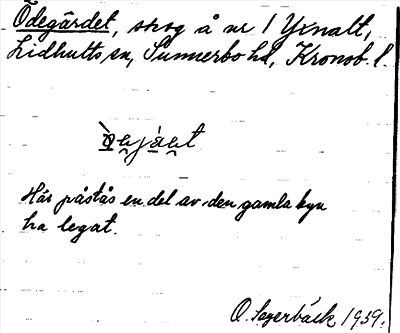 Ödegärdet, skog å nr 1 Yxnalt,
Lidhults sn, Sunnerbo hd, Kronob. l.
Här påstås en del av den gamla byn
ha legat.
O. Sagerbäck 1939.